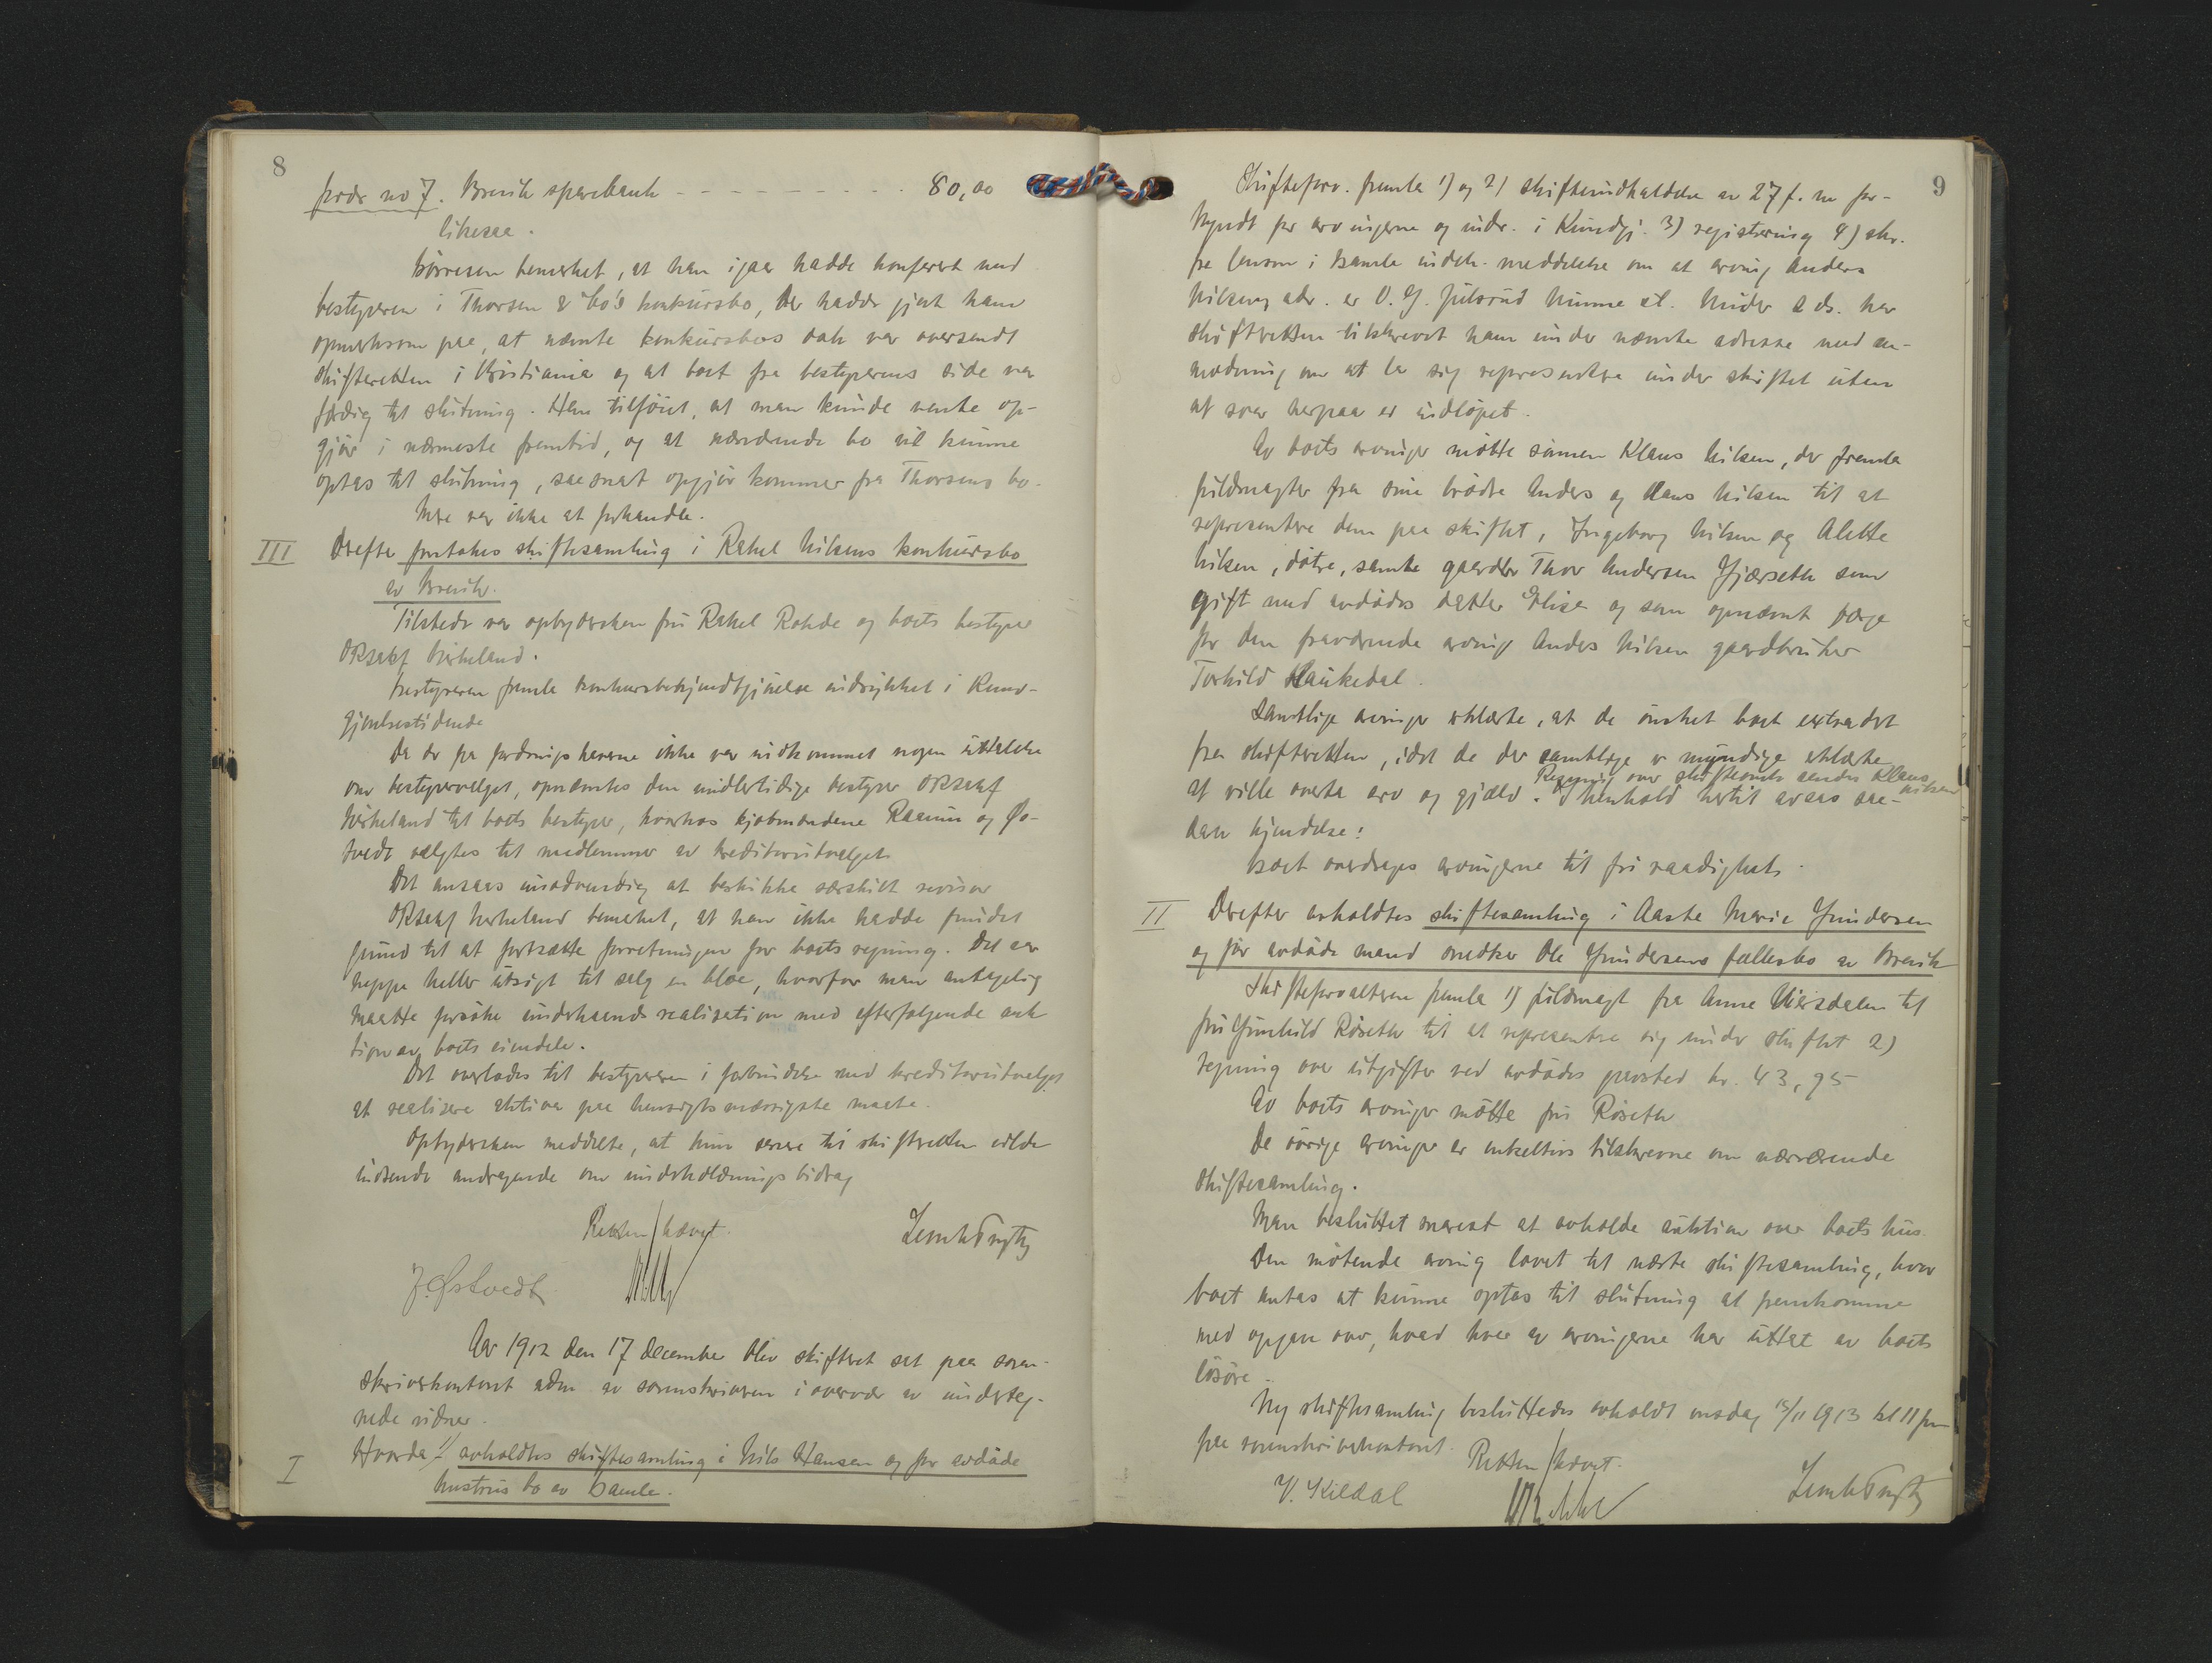 8
fordr no 7. Brevik sparebank - - - - - - - - - 80,00
likesaa.
Børresen bemerket, at han igaar hadde konferert med
bestyreren i Thorsen & Co's konkursbo, der hadde gjort ham
opmerksom paa, at nævnte konkursbos sak var oversendt
skifteretten i Kristiania og at boet fra bestyrerens side var
færdig til slutning. Han tilføiet, at man kunde vente op-
gjør i nærmeste fremtid, og at nærværende bo vil kunne
optas til slutning, saasnart opgjør kommer fra Thorsens bo.
Mere var ikke at forhandle.
III Derefter foretokes skiftesamling i Rakel Nilsens konkursbo
av Brevik.
Tilstede var opbydersken fru Rakel Rohde og boets bestyrer
ORsakf Birkeland.
Bestyreren fremla konkursbekjendtgjørelse indrykket i Kund-
gjørelsestidende
Da der fra fordringshaverne ikke var indkommet nogen uttalelse
om bestyrervalget, opnævntes den midlertidige bestyrer ORsakf
Birkeland til boets bestyrer, hvorhos kjøbmændene Raanum og Øst-
tvedt valgtes til medlemmer av kreditorutvalget.
Det ansaaes unødvendig at beskikke særskilt revisor
ORsakf Birkeland bemerket, at han ikke hadde fundet
grund til at fortsætte forretningen for boets regning. Det var
neppe heller utsigt til salg en bloc, hvorfor man antagelig
maatte forsøke underhaands realisation med efterfølgende auk
tion av boets eiendele.
Det overlodes til bestyreren i forbindelse med kreditorutvalget
at realisere aktiva paa hensigtsmæssigste maate.
Opbydersken meddelte, at hun senere til skifteretten vilde
indsende andragende om underholdningsbidrag
Retten hævet.
J. Østvedt
Aar 1912 den 17 december blev skifteret sat paa soren-
skriverkontoret adm av sorenskriveren i overvær av underteg-
nede vidner.
I Hvorda 1/ avholdtes skiftesamling i Nils Hansen og før avdøde
hustrus bo av Bamle.
9
Skifteforv. fremla 1) og 2) skifteindkaldelse av 27 f. m for-
kyndt for arvingerne og indr. i Kundgj. 3) registrering 4) skr.
fra lensm i Bamle indeh. meddelelse om at arving Anders
Nilsens adr. er O. G. Julsrud Minne st. Under 2 ds. har
skifteretten tilskrevet ham under nævnte adresse med an-
modning om at la sig representere under skiftet uten
at svar herpaa er indløpet.
Av boets arvinger møtte sønnen Klaus Nilsen, der fremla
fuldmagter fra sine brødre Anders og Hans Nilsen til at
representere dem paa skiftet, Ingeborg Nilsen og Alette
Nilsen, døtre, samt gaardbr Thor Andersen Gjærseth som
gift med avdødes datter Elise og som opnævnt verge
for den fraværende arving Anders Nilsen gaardbruker
Torkild Haukedal.
Samtlige arvinger erklærte, at de ønsket boet extradert
fra skifteretten, idet de der samtlige er myndige erklærte
Regning over skifteomk sendes Klaus Nilsen
at ville overta arv og gjæld. I henhold hertil avsaes saa-
dan kjendelse:
Boet overdrages arvingerne til fri raadighet.
II Derefter avholdtes skiftesamling i Aaste Marie Gundersen
og før avdøde mand snedker Ole Gundersens fællesbo av Brevik
Skifteforvalteren fremla 1) fuldmagt fra Anne Viersdalen til
fru Gunhild Røseth til at representere sig under skiftet 2)
regning over utgifter ved avdødes gravsted kr. 43,95
Av boets arvinger møtte fru Røseth
De øvrige arvinger er enkeltvis tilskrevne om nærværende
skiftesamling.
Man besluttet snarest at avholde auktion over boets hus.
Den møtende arving lovet til næste skiftesamling, hvor
boet antas at kunne optas til slutning at fremkomme
med opgave over, hvad hver av arvingerne har uttat av boets
løsøre.
Ny skiftesamling besluttedes avholdt onsdag 15/1 1913 kl 11 fm
paa sorenskriverkontoret.
Retten hævet.
V. Kildal